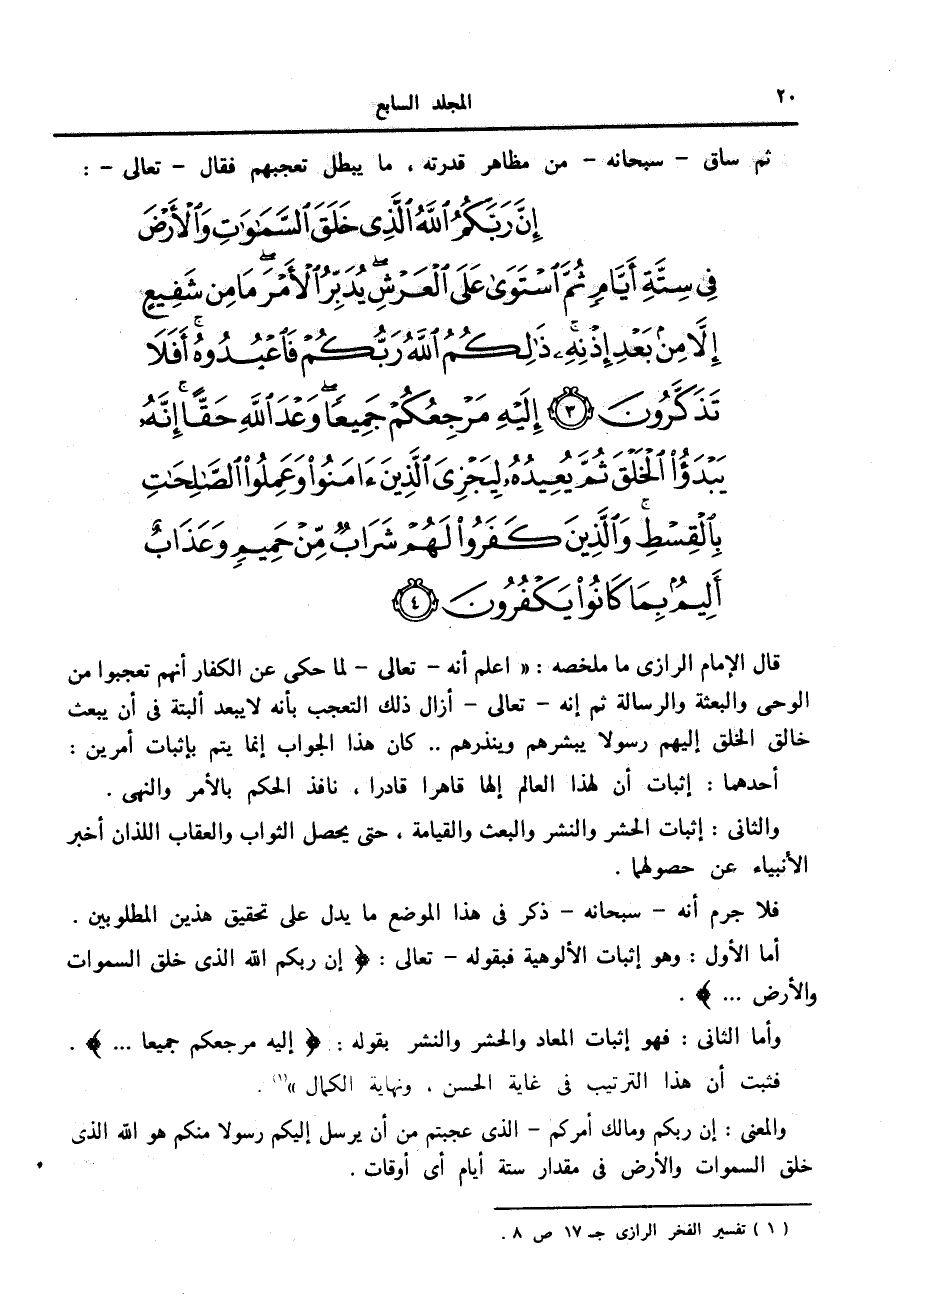 ٢٠
المجلد السابع
ثم ساق - سبحانه - من مظاهر قدرته ، ما يبطل تعجبهم فقال - تعالى - :
إِنَّ رَبَّكُمُ ٱللَّهُ ٱلَّذِى خَلَقَ ٱلسَّمَٰوَٰتِ وَٱلْأَرْضَ
فِى سِتَّةِ أَيَّامٍ ثُمَّ ٱسْتَوَىٰ عَلَى ٱلْعَرْشِ ۖ يُدَبِّرُ ٱلْأَمْرَ ۖ مَا مِن شَفِيعٍ
إِلَّا مِنۢ بَعْدِ إِذْنِهِۦ ۚ ذَٰلِكُمُ ٱللَّهُ رَبُّكُمْ فَٱعْبُدُوهُ ۚ أَفَلَا
تَذَكَّرُونَ ٣ إِلَيْهِ مَرْجِعُكُمْ جَمِيعًا ۖ وَعْدَ ٱللَّهِ حَقًّا ۚ إِنَّهُۥ
يَبْدَؤُا۟ ٱلْخَلْقَ ثُمَّ يُعِيدُهُۥ لِيَجْزِىَ ٱلَّذِينَ ءَامَنُوا۟ وَعَمِلُوا۟ ٱلصَّٰلِحَٰتِ
بِٱلْقِسْطِ ۚ وَٱلَّذِينَ كَفَرُوا۟ لَهُمْ شَرَابٌ مِّنْ حَمِيمٍ وَعَذَابٌ
أَلِيمٌۢ بِمَا كَانُوا۟ يَكْفُرُونَ ٤
قال الإمام الرازى ما ملخصه : « اعلم أنه - تعالى - لما حكى عن الكفار أنهم تعجبوا من
الوحى والبعثة والرسالة ثم إنه - تعالى - أزال ذلك التعجب بأنه لايبعد ألبتة فى أن يبعث
خالق الخلق إليهم رسولا يبشرهم وينذرهم .. كان هذا الجواب إنما يتم بإثبات أمرين :
أحدهما : إثبات أن لهذا العالم إلها قاهرا قادرا ، نافذ الحكم بالأمر والنهى .
والثانى : إثبات الحشر والنشر والبعث والقيامة ، حتى يحصل الثواب والعقاب اللذان أخبر
الأنبياء عن حصولهما .
فلا جرم أنه - سبحانه - ذكر فى هذا الموضع ما يدل على تحقيق هذين المطلوبين .
أما الأول : وهو إثبات الألوهية فبقوله - تعالى : ﴿ إن ربكم الله الذى خلق السموات
والأرض ... ﴾ .
وأما الثانى : فهو إثبات المعاد والحشر والنشر بقوله : ﴿ إليه مرجعكم جميعا ... ﴾ .
فثبت أن هذا الترتيب فى غاية الحسن ، ونهاية الكمال »(١) .
والمعنى : إن ربكم ومالك أمركم - الذى عجبتم من أن يرسل إليكم رسولا منكم هو الله الذى
خلق السموات والأرض فى مقدار ستة أيام أى أوقات .
( ١ ) تفسير الفخر الرازى جـ ١٧ ص ٨ .